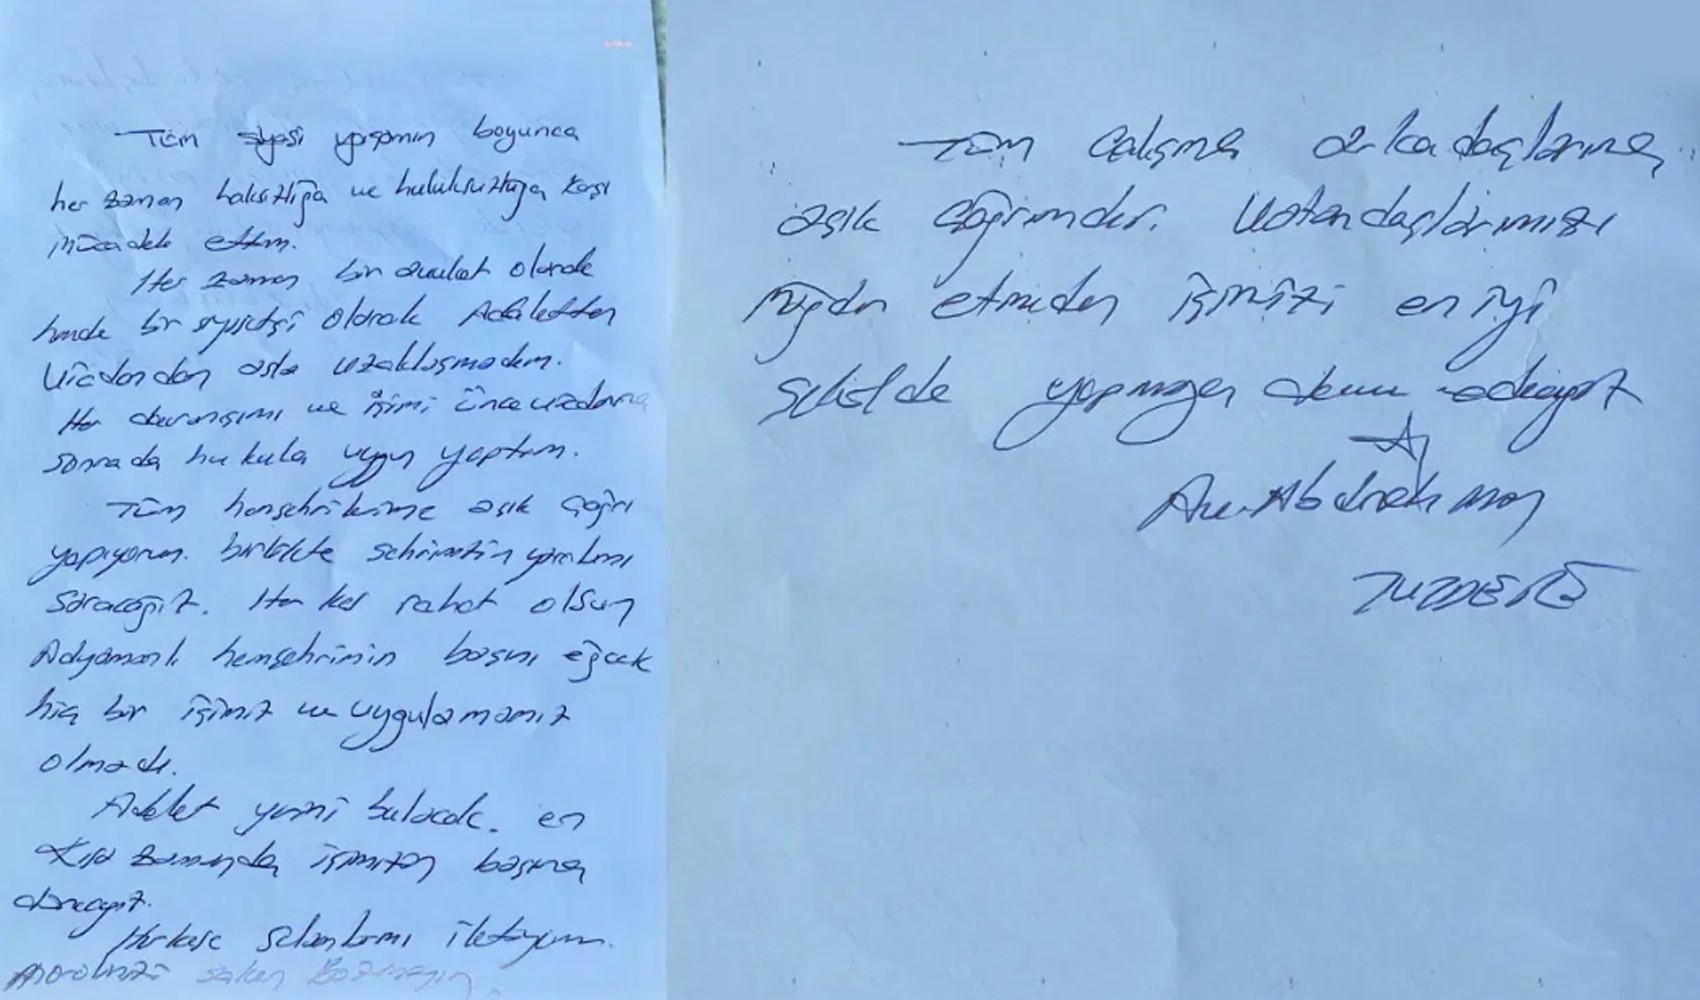 anka
Tüm siyasi yaşamım boyunca
her zaman haksızlığa ve hukuksuzluğa karşı
mücadele ettim.
Her zaman bir avukat olarak
hemde bir siyasetçi olarak Adaletten
vicdandan asla uzaklaşmadım.
Her davranışımı ve işimi önce vicdanıma
sonrada hukuka uygun yaptım.
Tüm hemşehrilerime açık çağrı
yapıyorum. birlikte şehrimizin yaralarını
saracağız. Herkes rahat olsun
Adıyamanlı hemşehrimin başını eğecek
hiç bir işimiz ve uygulamamız
olmadı.
Adalet yerini bulacak. en
kısa zamanda işimizin başına
döneceğiz.
Herkese selamlarımı iletiyorum.
Moralinizi sakın Bozmayın.
Tüm çalışma arkadaşlarıma
açık çağrımdır. Vatandaşlarımızı
mağdur etmeden işimizi en iyi
şekilde yapmaya devam edeceğiz
Av. Abdurrahman
TUTDERE